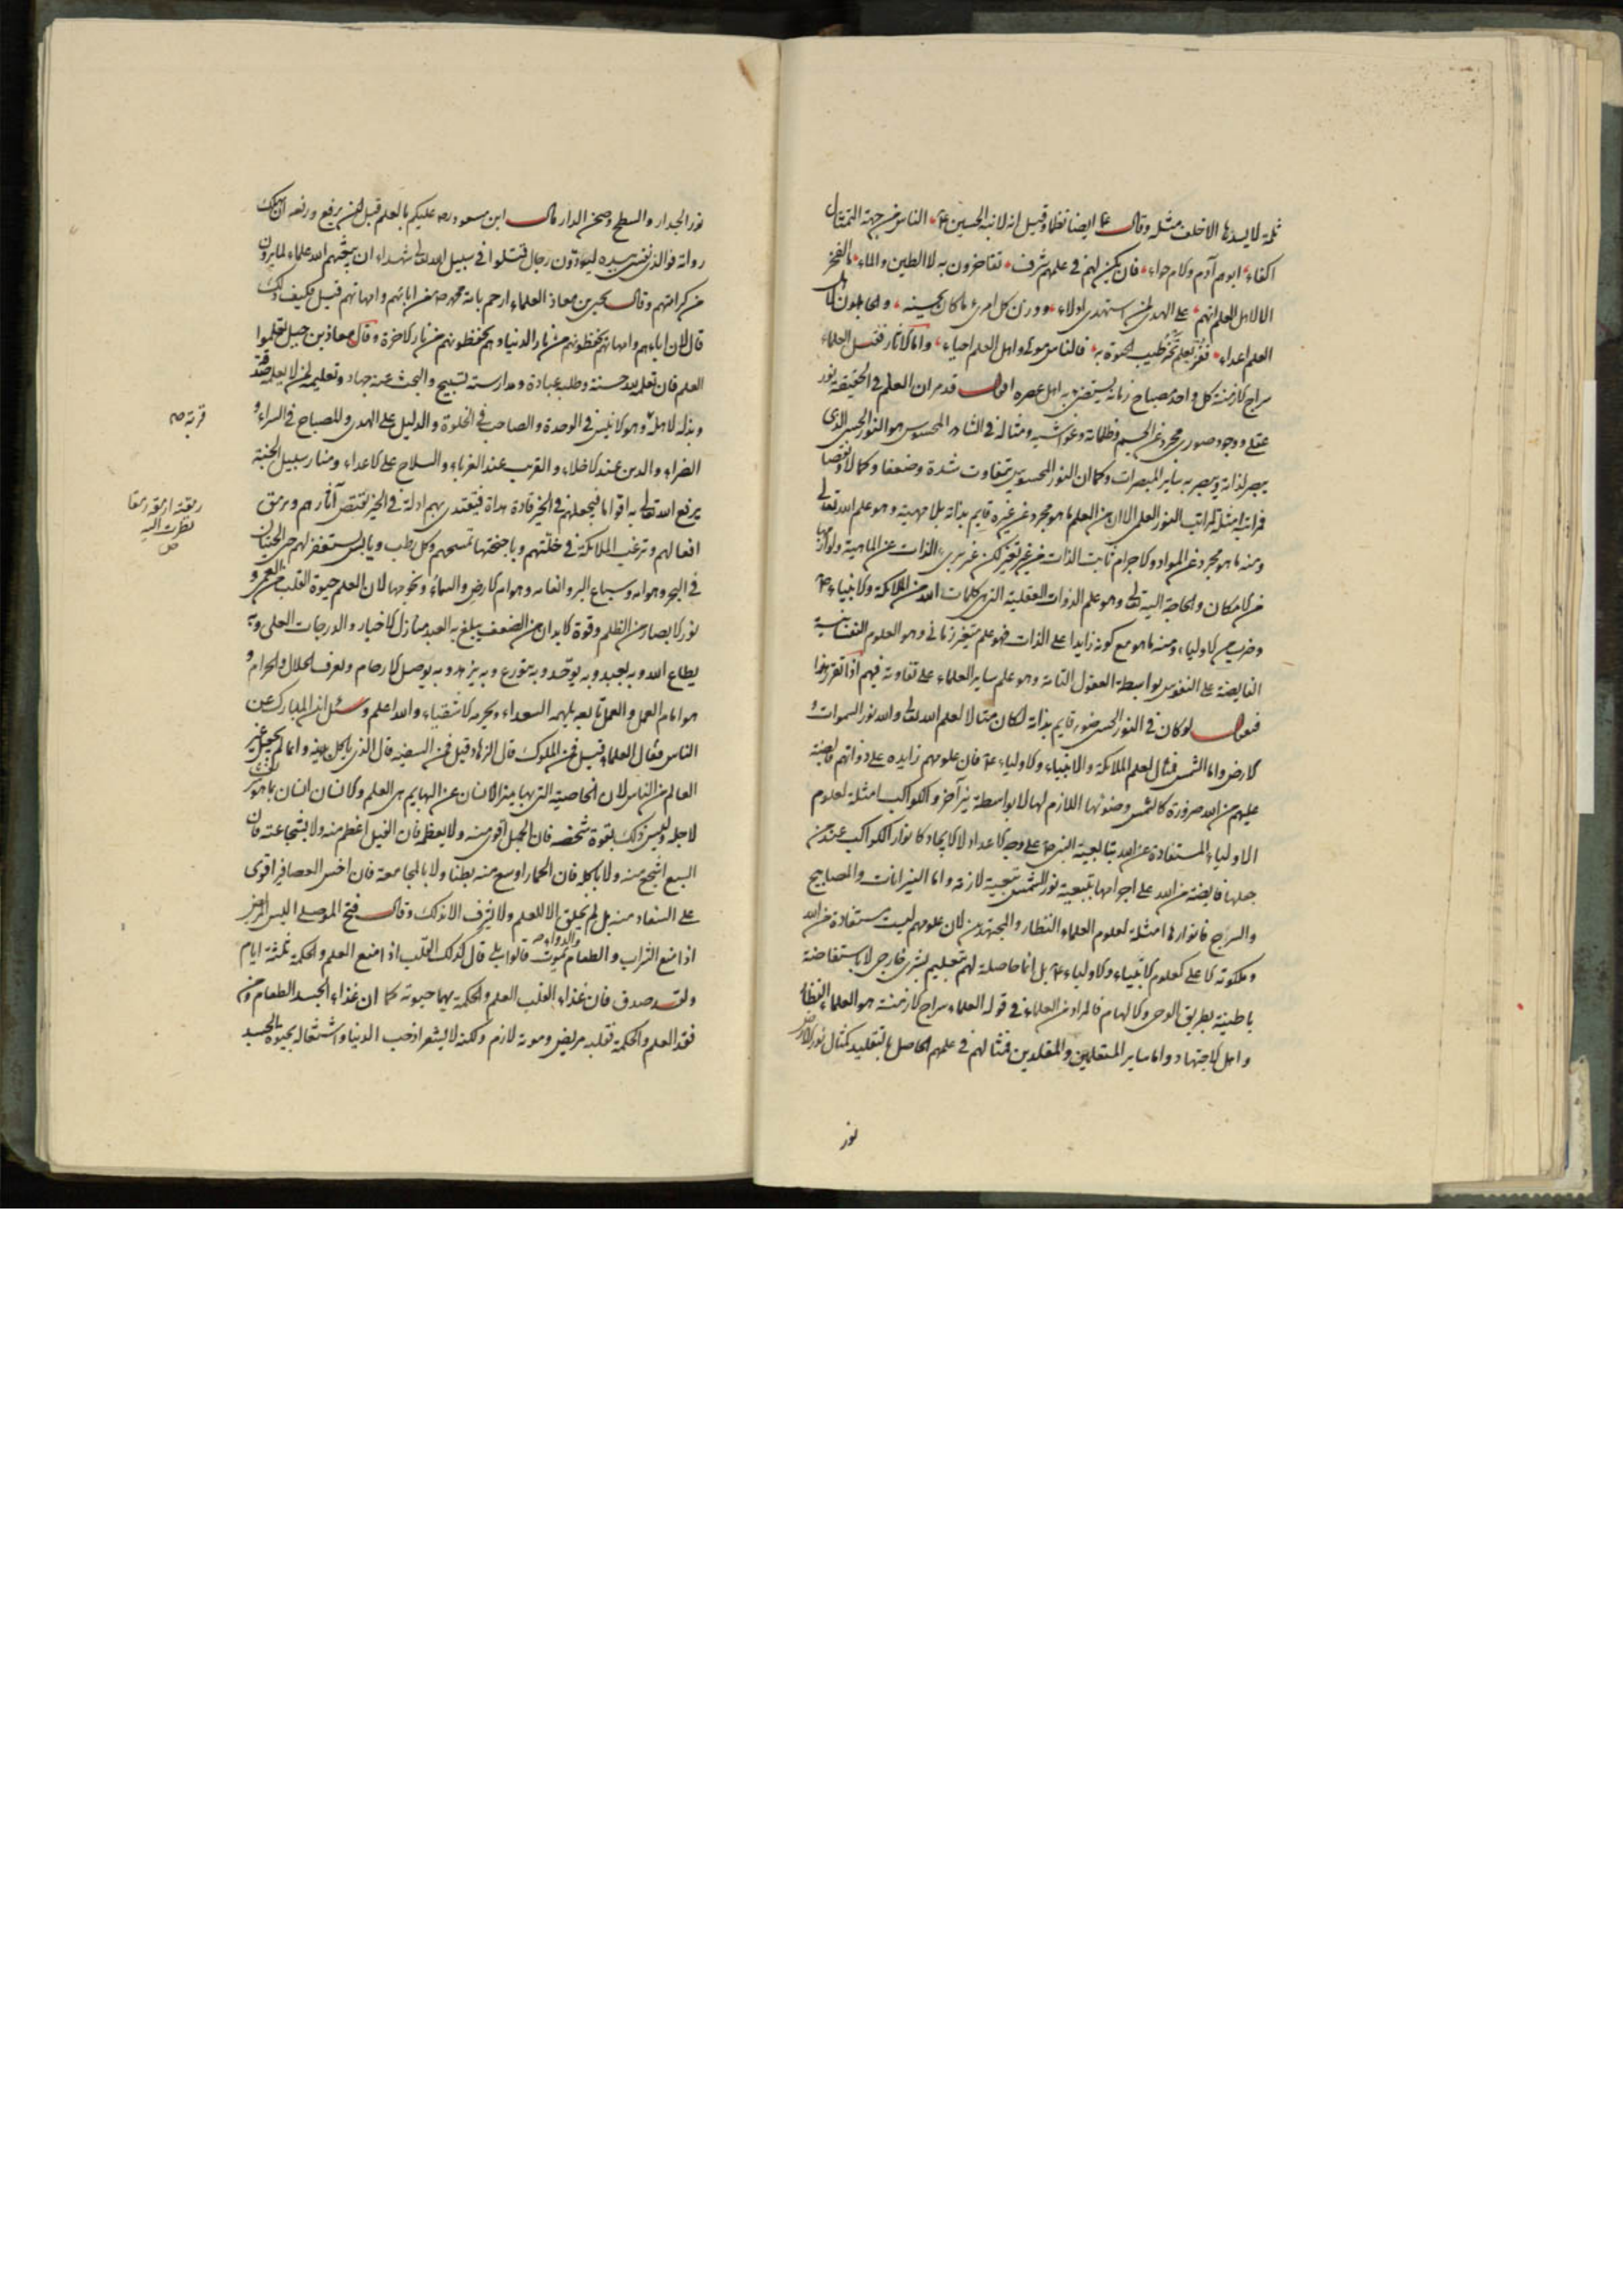 ثلمة لا يسدها الا خلف مثله وقال ع ايضا نظما وقيل انه لابنه الحسين ع الناس من جهة التمثال
اكفاء ابوهم آدم والام حواء فان يكن لهم في علمهم شرف تفاخرون به لا الطين والماء ما الفخر
الا لاهل العلم انهم على الهدى لمن استهدى ادلاء ووزن كل امرء ما كان يحسنه والجاهلون لاهل
العلم اعداء ففز بعلم تحز طيب الحيوة به فالناس موتى واهل العلم احياء واما الآثار فقيل العلماء
سراج الازمنة كل واحد مصباح زمانه يستضئ به اهل عصره اقول قد مر ان العلم في الحقيقة نور
عقلي ووجود صوري مجرد عن الجسم وظلماته وغواشيه ومثاله في الشاهد المحسوس هو النور الحسي الذي
يبصر لذاته ويبصر به ساير المبصرات وكما ان النور المحسوس يتفاوت شدة وضعفا وكمالا ونقصا
فمراتبه امثلة لمراتب النور العلمي الا ان من العلم ما هو مجرد عن غيره قايم بذاته بلا مهية وهو علم الله تعالى
ومنه ما هو مجرد عن المواد والاجرام ثابت الذات من غير تغير لكن غير برىء الذات عن الماهية ولوازمها
من الامكان والحاجة اليه تعالى وهو علم الذوات العقلية التي هي كلمات الله من الملائكة والانبياء ع
وضرب من الاولياء ومنه ما هو مع كونه زايدا على الذات فهو علم متغير زماني وهو العلوم النفسانية
الفايضة على النفوس بواسطة العقول التامة وهو علم ساير العلماء على تفاوته فيهم اذا تقرر هذا
فنقول لو كان في النور الحسي ضوء قايم بذاته لكان مثالا لعلم الله تعالى والله نور السموات و
الارض واما الشمس فمثال لعلم الملائكة والانبياء والاولياء ع فان علومهم زايده على ذواتهم فايضة
عليهم من الله ضرورة كالشمس وضوئها اللازم لها لا بواسطة نير آخر والكواكب امثلة لعلوم
الاولياء المستفادة عن الله بتابعية النبي ص على وجه الاعداد لا الايجاد كانوار الكواكب عند من
جعلها فايضة من الله على اجرامها بتبعية نور الشمس تبعية لازمة واما النيرانات والمصابيح
والسراج فانوارها امثلة لعلوم العلماء النظار والمجتهدين لان علومهم ليست مستفادة من الله
وملكوته الاعلى كعلوم الانبياء والاولياء ع بل انما حاصلة لهم بتعليم بشري خارجي لا باستفاضة
باطنية بطريق الوحي والالهام فالمراد من العلماء في قوله العلماء سراج الازمنة هو العلماء النظار
واهل الاجتهاد واما ساير المتعلمين والمقلدين فمثالهم في علمهم الحاصل بالتقليد كمثال نور الارض
نور
نور الجدار والسطح وصحن الدار قال ابن مسعود ره عليكم بالعلم قبل ان يرفع ورفعه ان يهلك
رواته فوالذي نفسي بيده ليودون رجال قتلوا في سبيل الله تعالى شهداء ان يبعثهم الله علماء لما يرون
من كرامتهم وقال يحيى بن معاذ العلماء ارحم بامة محمد ص من ابائهم وامهاتهم قيل وكيف ذلك
قال لان اباءهم وامهاتهم يحفظونهم من نار الدنيا وهم يحفظونهم من نار الاخرة وقال معاذ بن جبل تعلموا
العلم فان تعلمه لله حسنة وطلبه عبادة ومدارسته تسبيح والبحث عنه جهاد وتعليمه لمن لا يعلمه صدقة
وبذله لاهله وهو الانيس في الوحدة والصاحب في الخلوة والدليل على الهدى والمصباح في السراء و
الضراء والدين عند الاخلاء والقريب عند الغرباء والسلاح على الاعداء ومنار سبيل الجنة
يرفع الله تعالى به اقواما فيجعلهم في الخير قادة هداة فيقتدى بهم ادلة في الخير تقتص آثارهم ورمق
افعالهم وترغب الملائكة في خلتهم وباجنحتها تمسحهم وكل رطب ويابس يستغفر لهم حتى الحيتان
في البحر وهوامه وسباع البر وانعامه وهوام الارض والسماء ونجومها لان العلم حيوة القلب من العمى و
نور الابصار من الظلم وقوة الابدان من الضعف يبلغ به العبد منازل الاخيار والدرجات العلى وبه
يطاع الله وبه يعبد وبه يوحد وبه يتورع وبه يزهد وبه يوصل الارحام ويعرف الحلال والحرام و
هو امام العمل والعمل تابعه يلهمه السعداء ويحرمه الاشقياء والله اعلم وسئل ابن المبارك عن
الناس فقال العلماء فقيل فمن الملوك قال الزهاد قيل فمن السفلة قال الذي ياكل بدينه وانما لم يجعل غير
العالم من الناس لان الخاصية التي بها يتميز الانسان عن البهايم هي العلم والانسان انسان بما هو شريف
لاجله وليس ذلك بقوة شخصه فان الجمل اقوى منه ولا بعظمه فان الفيل اعظم منه ولا بشجاعته فان
السبع اشجع منه ولا باكله فان الحمار اوسع منه بطنا ولا بالمجامعة فان اخس العصافير اقوى
على السفاد منه بل لم يخلق الا للعلم ولا شرف الا لذلك وقال فتح الموصلي اليس المريض
اذا منع الشراب والطعام والدواء يموت قالوا بلى قال كذلك القلب اذا منع العلم والحكمة ثلثة ايام
ولقد صدق فان غذاء القلب العلم والحكمة بهما حيوته كما ان غذاء الجسد الطعام ومن
فقد العلم والحكمة فقلبه مريض وموته لازم ولكنه لا يشعر اذ حب الدنيا واشتغاله بحيوة الجسد
قربة ص
رمقته ارمقه رمقا
نظرت اليه
ص